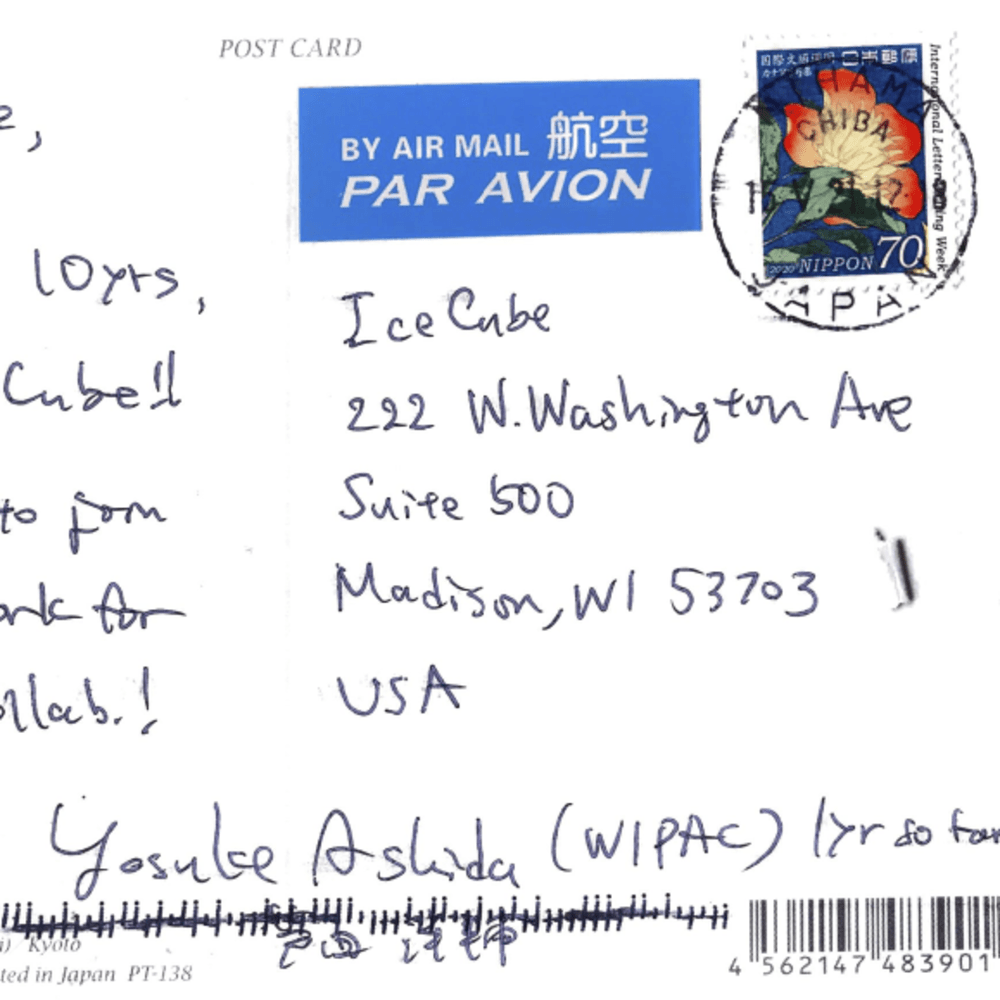 POST CARD
BY AIR MAIL 航空
PAR AVION
国際文通週間 日本郵便
International Letter Writing Week
2020 NIPPON 70
CHIBA
JAPAN
10yrs,
Cube!!
to join
for
!
IceCube
222 W. Washington Ave
Suite 500
Madison, WI 53703
USA
Yosuke Ashida (WIPAC) 1yr so far
Kyoto
in Japan PT-138
4 562147 483901